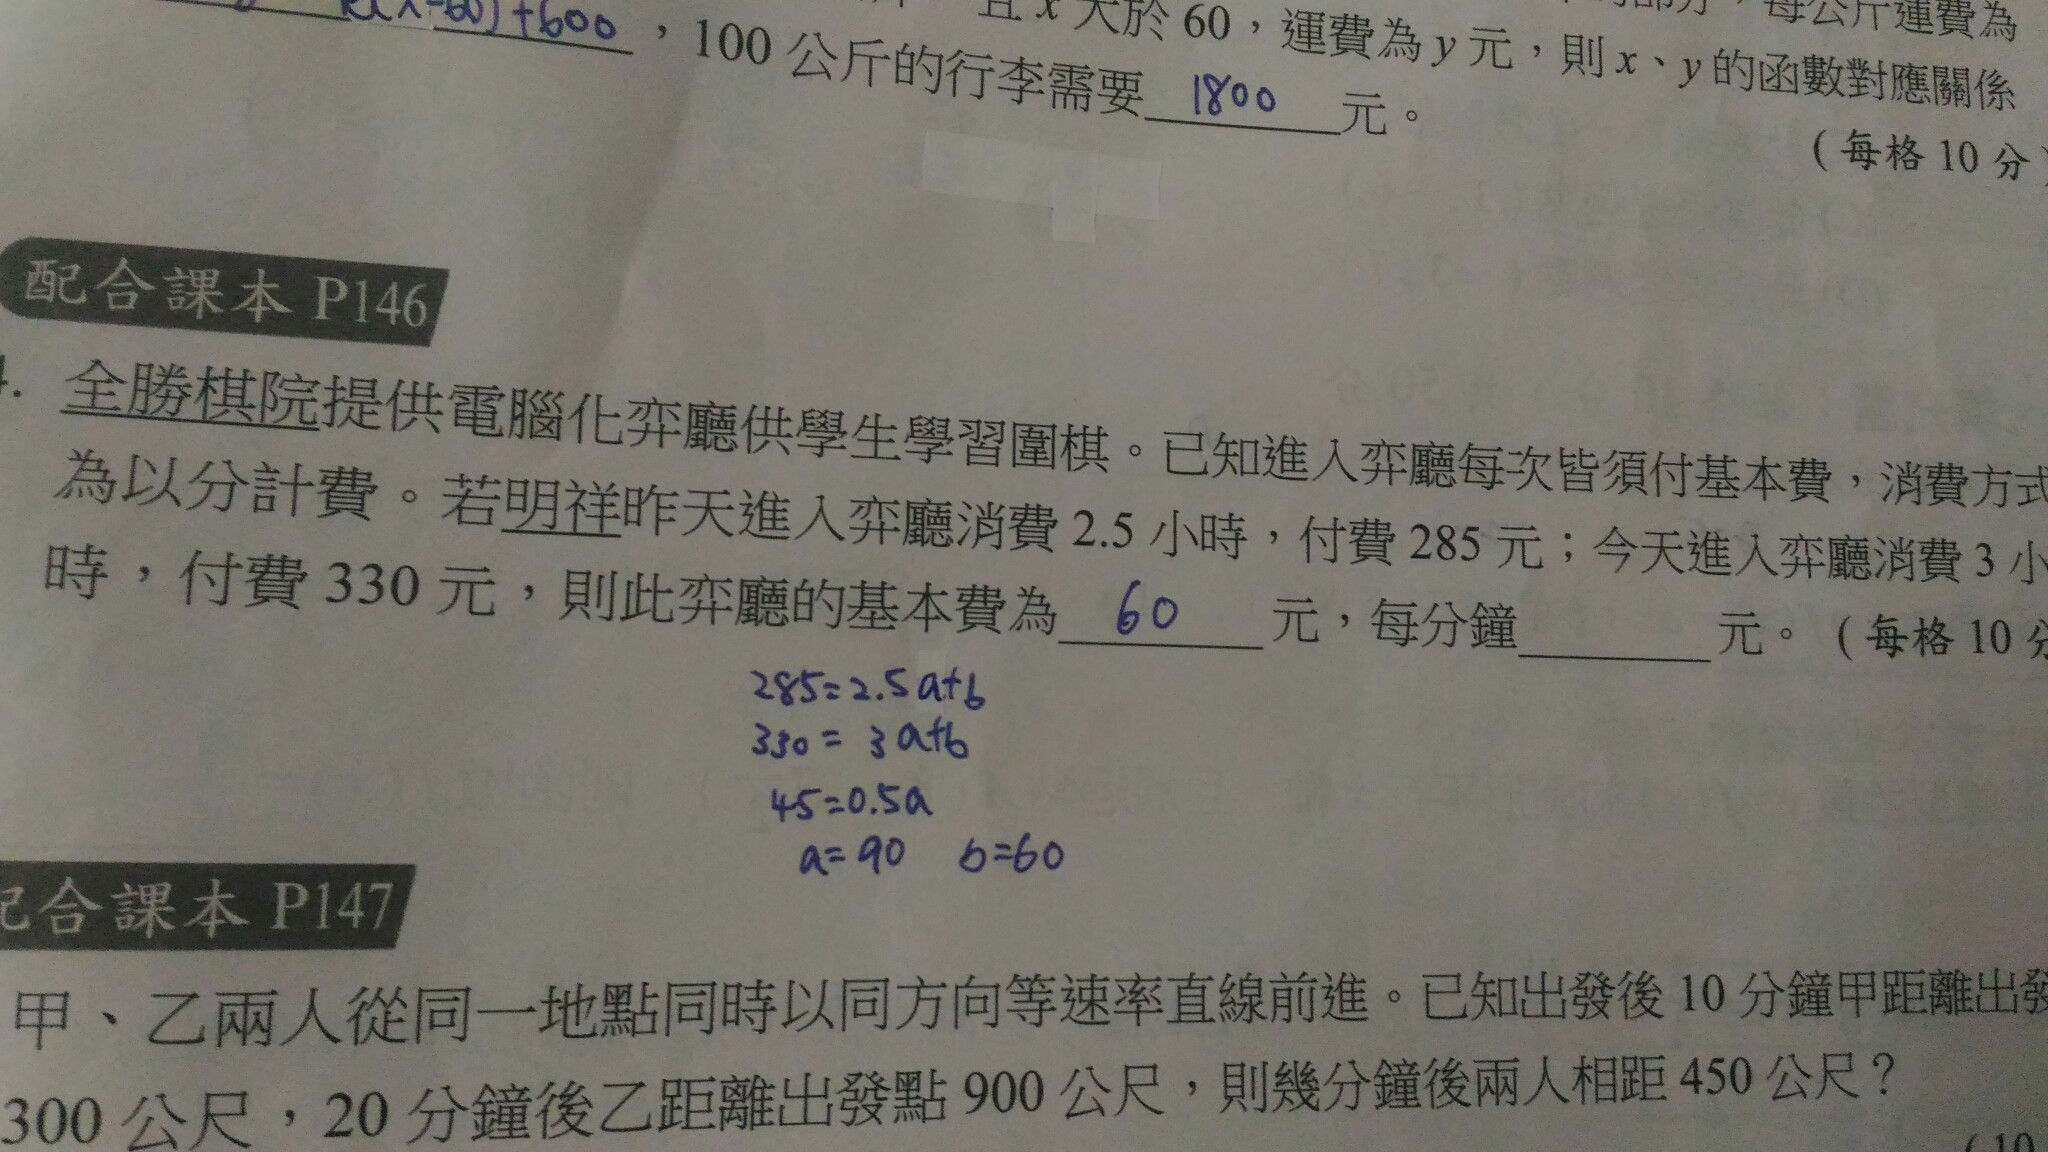 k(x-60)+600，100公斤的行李需要 1800 元。
且x大於60，運費為y元，則x、y的函數對應關係
每公斤運費為
(每格10分)
配合課本 P146
全勝棋院提供電腦化弈廳供學生學習圍棋。已知進入弈廳每次皆須付基本費，消費方式
為以分計費。若明祥昨天進入弈廳消費2.5小時，付費285元；今天進入弈廳消費3小
時，付費330元，則此弈廳的基本費為 60 元，每分鐘____元。(每格10分
285=2.5a+b
330=3a+b
45=0.5a
a=90 b=60
配合課本 P147
甲、乙兩人從同一地點同時以同方向等速率直線前進。已知出發後10分鐘甲距離出發
300公尺，20分鐘後乙距離出發點900公尺，則幾分鐘後兩人相距450公尺？
(10